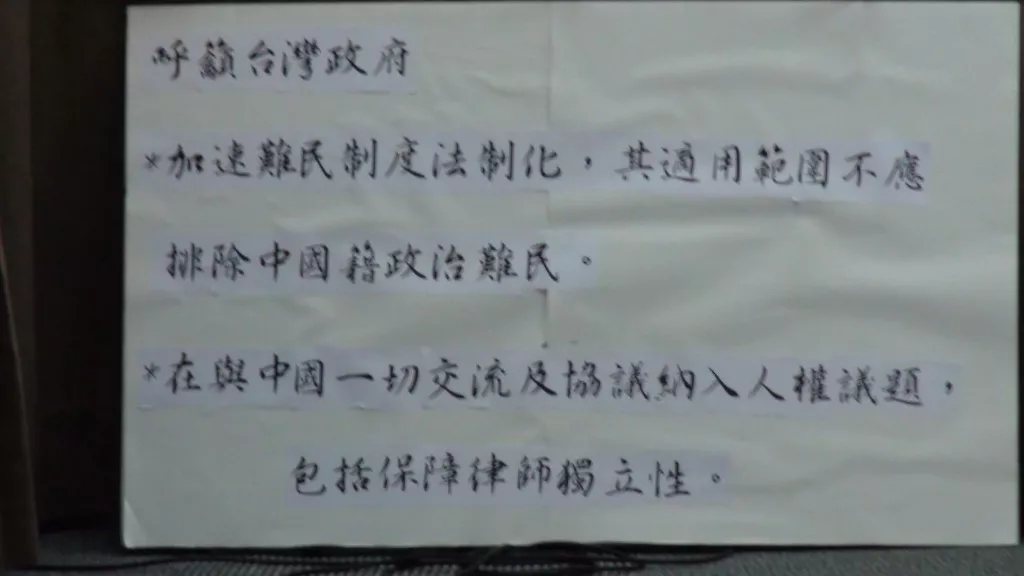 呼籲台灣政府
*加速難民制度法制化，其適用範圍不應
排除中國籍政治難民。
*在與中國一切交流及協議納入人權議題，
包括保障律師獨立性。